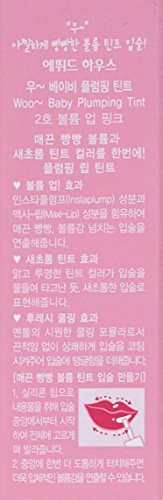 "우~"
아찔하게 빵빵한 볼륨 틴트 입술!
에뛰드 하우스
우~ 베이비 플럼핑 틴트
Woo~ Baby Plumping Tint
2호 볼륨 업 핑크
매끈 빵빵 볼륨과
새초롬 틴트 컬러를 한번에!
플럼핑 립 틴트
♥ 볼륨 업! 효과
인스타플럼프(Instaplump) 성분과
맥시-립(Maxi-Lip) 성분을 함유하여
매끈 빵빵, 볼륨감 넘치는 입술을
연출해줍니다.
♥ 새초롬 틴트 효과
맑고 투명한 틴트 컬러가 입술을
물들여 타고난 듯, 새초롬한 입술로
표현해줍니다.
♥ 후레쉬 쿨링 효과
멘톨의 시원한 쿨링 포뮬라로서
끈적임 없이 상쾌하게 입술을 코팅
시켜주어 입술에 탱글함을 더해줍니다.
[매끈 빵빵 볼륨 틴트 입술 만들기]
1. 실리콘 팁으로
내용물을 취해 입술
중앙에서부터 시작
하여 전체에 고르게
펴 발라줍니다.
2. 중앙에 한번 더 도톰하게 터치해주면
더욱 입체적인 볼륨감을 연출할 수 있습니다.